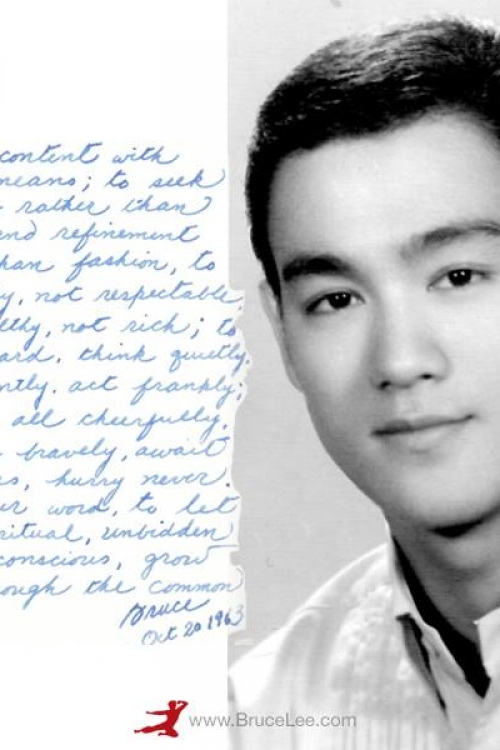 content with
means; to seek
rather than
and refinement
han fashion, to
y, not respectable,
lthy, not rich; to
ard, think quietly,
ntly, act frankly;
all cheerfully,
bravely, await
s, hurry never.
er word, to let
ritual, unbidden
conscious, grow
ough the common
Bruce
Oct 20 1963
www.BruceLee.com